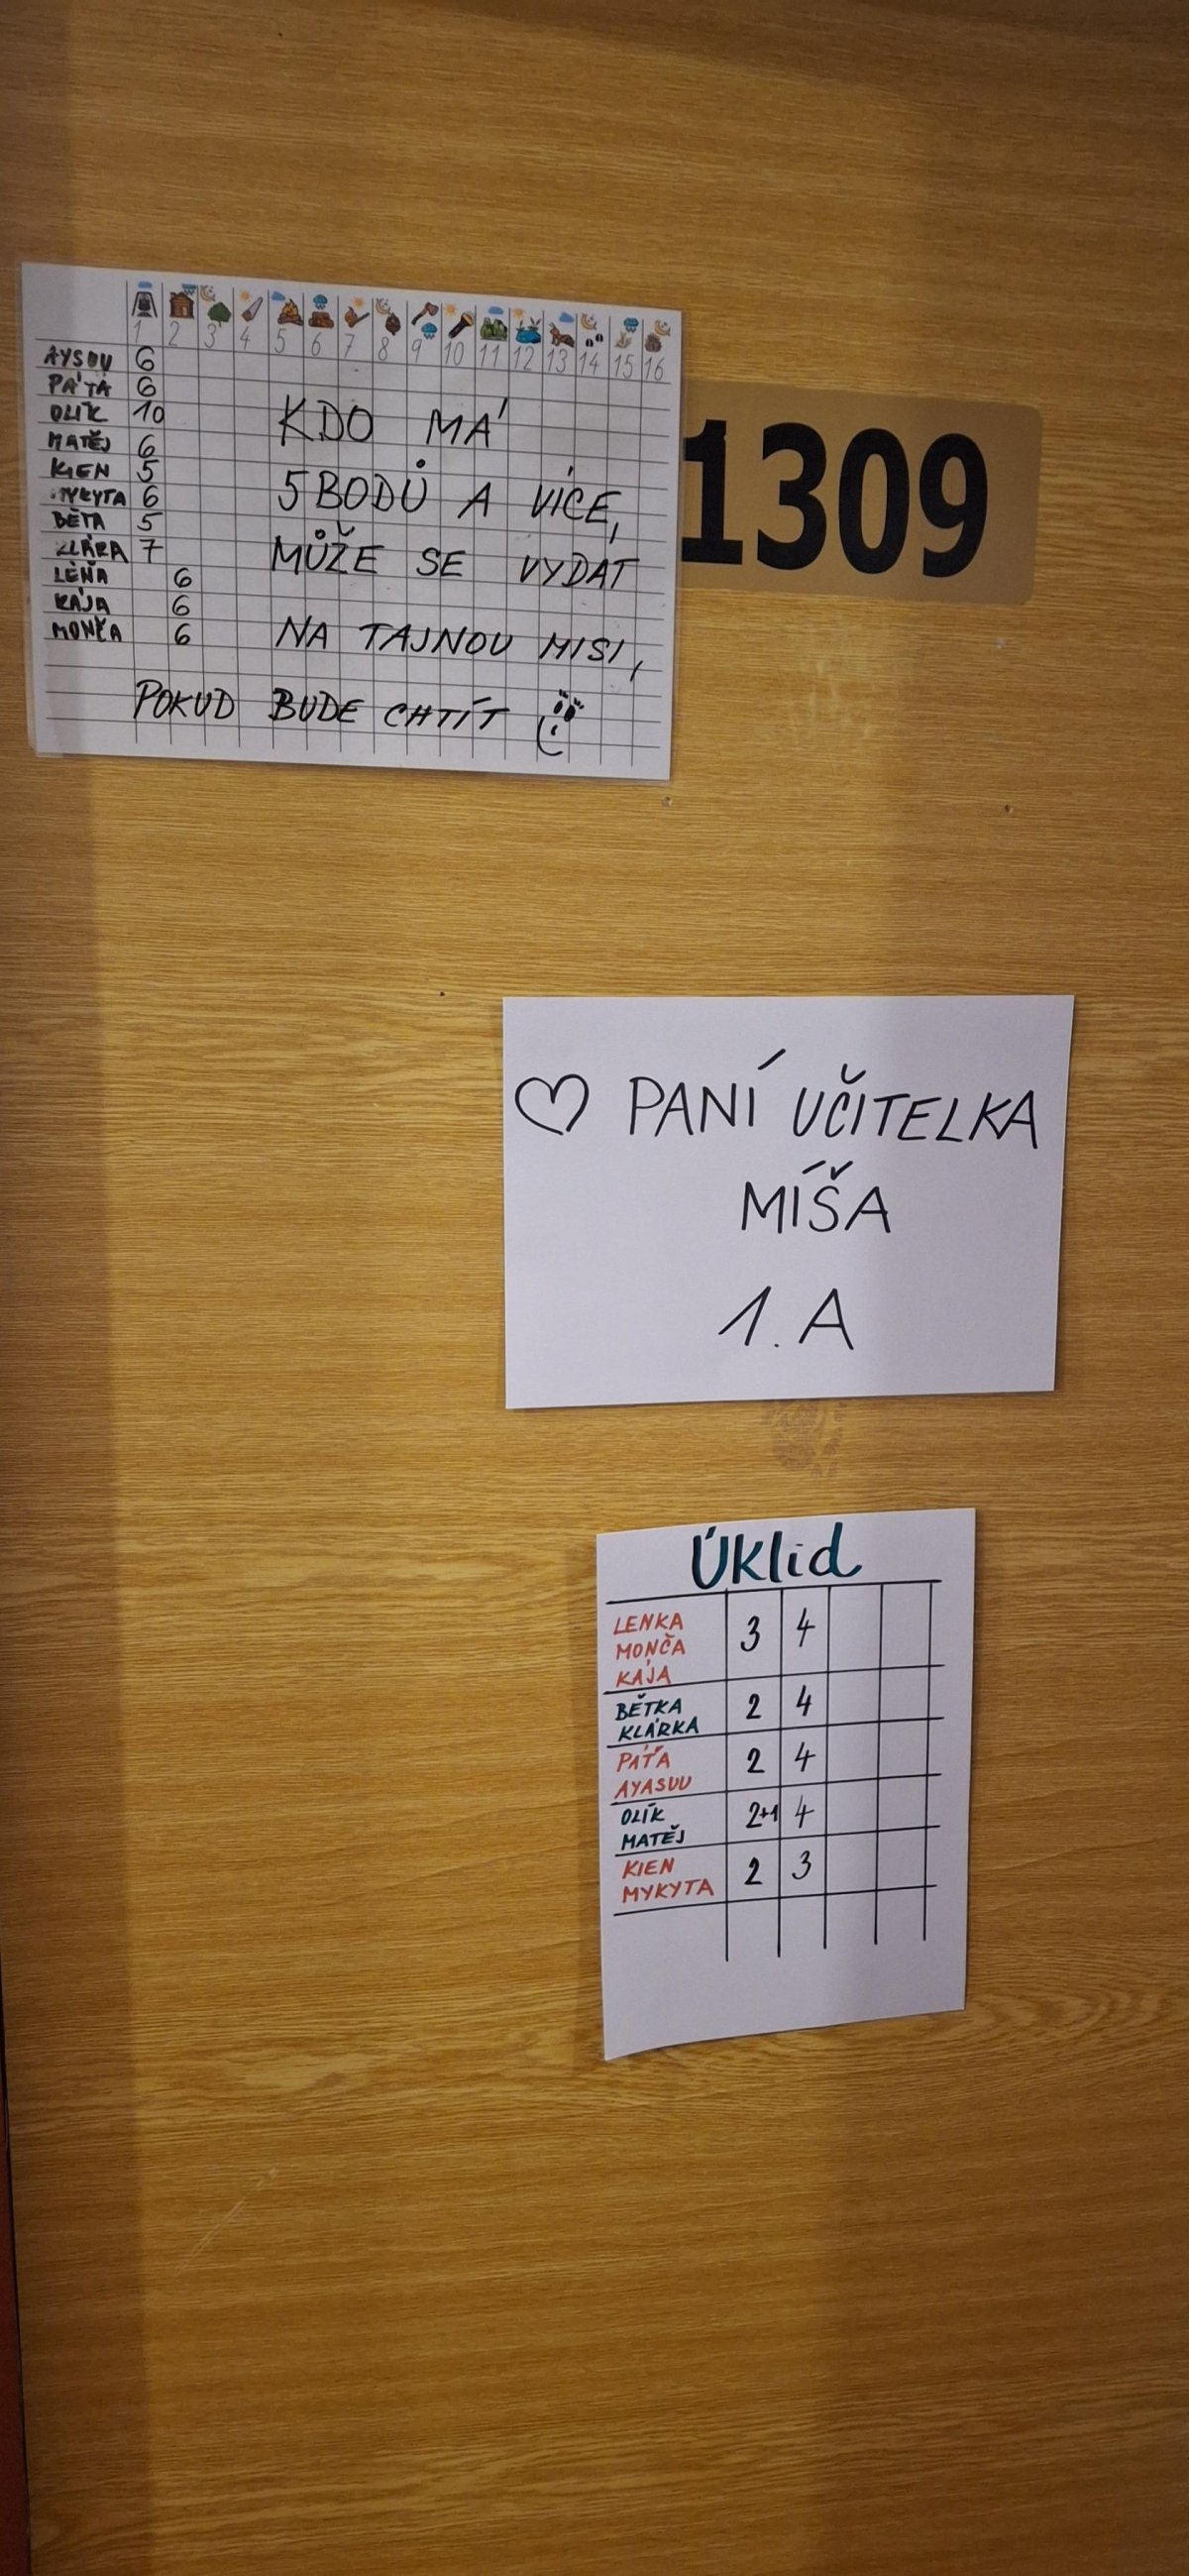 1 2 3 4 5 6 7 8 9 10 11 12 13 14 15 16
AYSOU 6
PÁŤA 6
OLÍK 10
MATĚJ 6
KIEN 5
MYKYTA 6
BĚTA 5
KLÁRA 7
LÉŇA 6
KÁJA 6
MONČA 6
KDO MÁ
5 BODŮ A VÍCE,
MŮŽE SE VYDAT
NA TAJNOU MISI,
POKUD BUDE CHTÍT
1309
♡ PANÍ UČITELKA
MÍŠA
1. A
Úklid
LENKA
MONČA 3 4
KÁJA
BĚTKA 2 4
KLÁRKA
PÁŤA 2 4
AYASUU
OLÍK 2+1 4
MATĚJ
KIEN 2 3
MYKYTA